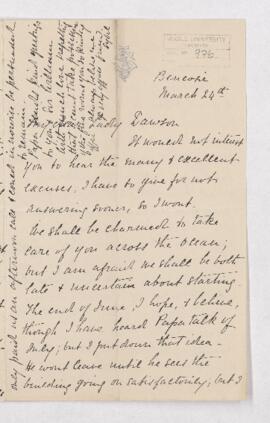 McGILL UNIVERSITY
ARCHIVES
976
Bencosie
March 24th
Lady Dawson
It would not interest
you to hear the many & excellent
excuses, I have to give for not
answering sooner, so I wont.
We shall be charmed to take
care of you across the Ocean;
but I am afraid we shall be both
late & uncertain about starting.
The end of June, I hope, & believe,
though I have heard Papa talk of
July; but I put down that idea.
He wont leave until he sees the
building going on satisfactorily, but I
only paid us an afternoon call & could in nowise be persuaded
to remain.
Papa sends kind greetings
to you & Sir William
with much love